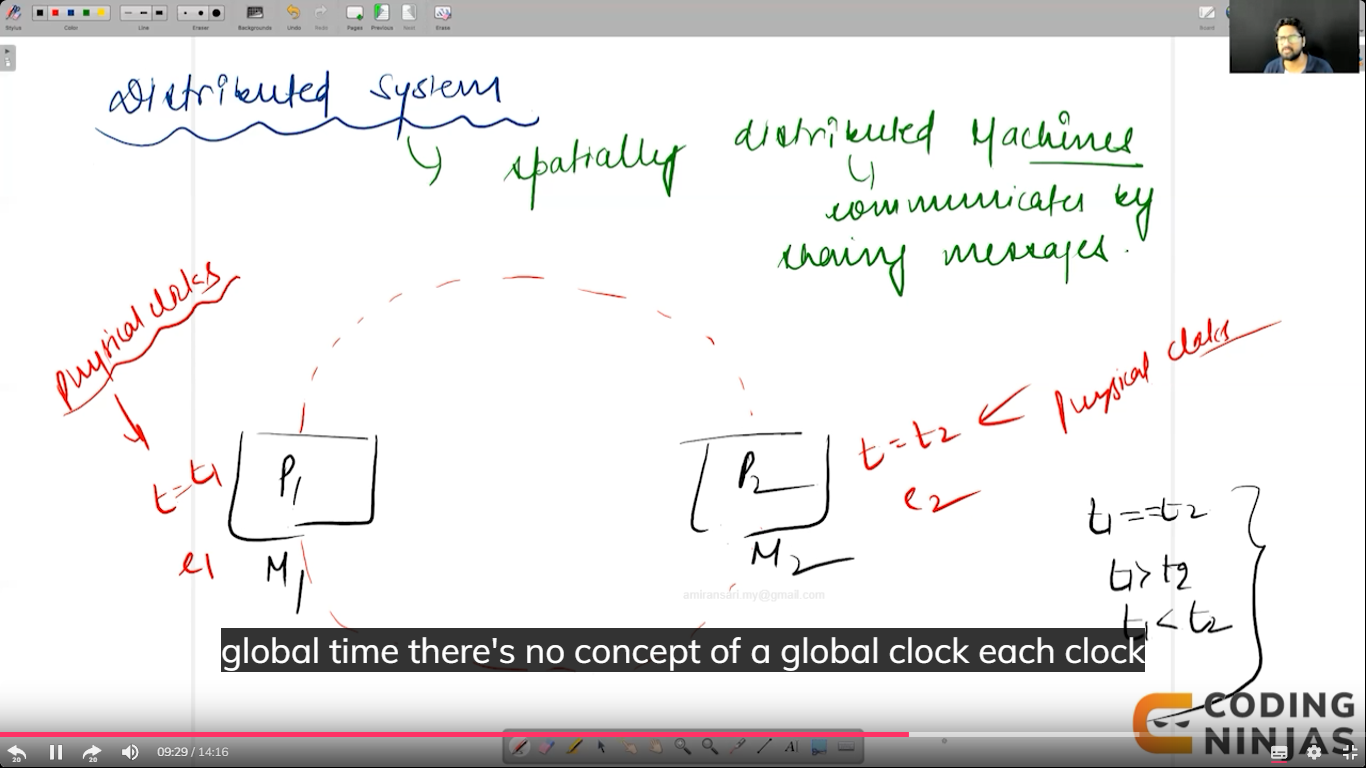 Stylus Color Line Eraser Backgrounds Undo Redo Pages Previous Next Erase Board
Distributed System
spatially distributed Machines
communicates by
sharing messages.
Physical clocks
Physical clocks
t=t1
P1
P2
t=t2
e1
M1
M2
e2
t1==t2
t1>t2
t1<t2
amiransari.my@gmail.com
global time there's no concept of a global clock each clock
CODING
NINJAS
20
20
09:29 / 14:16